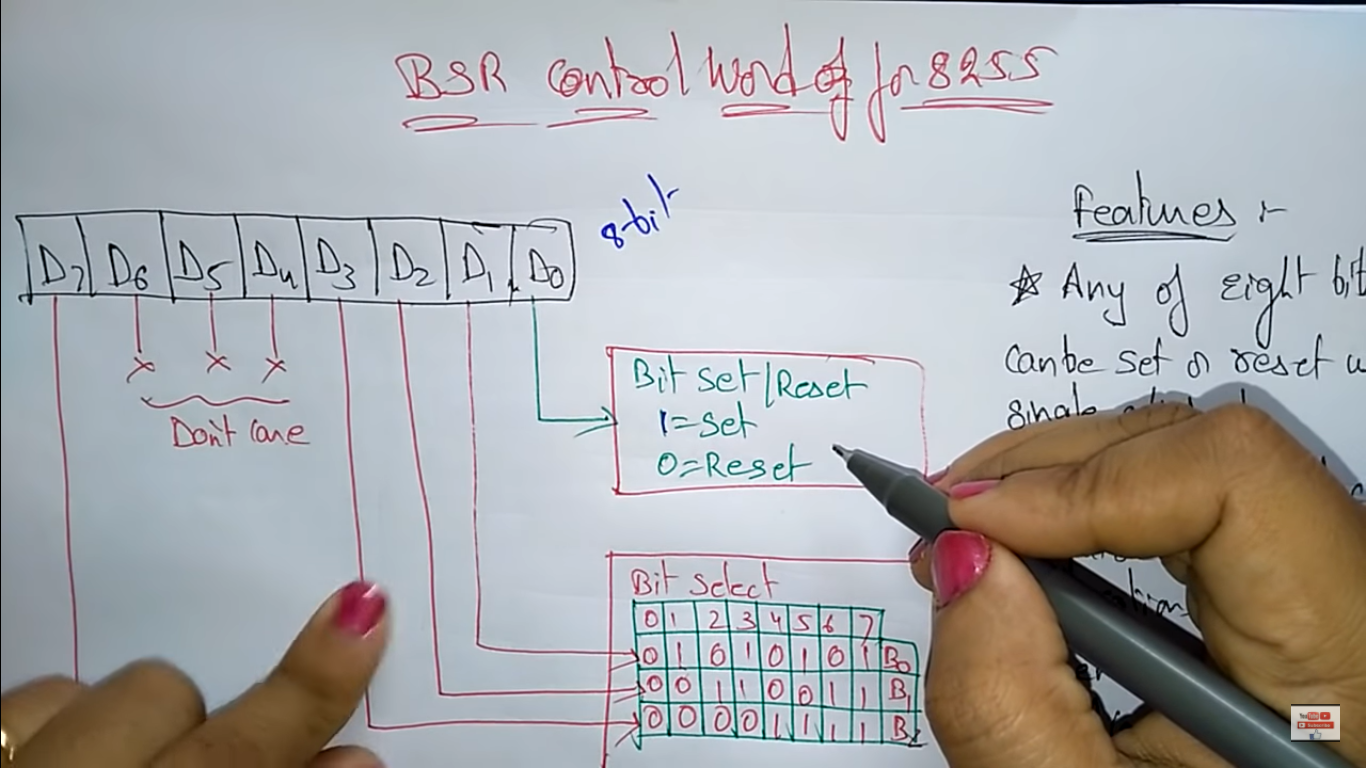 BSR control word of for 8255
8-bit
D7 D6 D5 D4 D3 D2 D1 D0
x x x
Don't Care
Bit set/Reset
1=set
0=Reset
Bit select
0 1 2 3 4 5 6 7
0 1 0 1 0 1 0 1 B0
0 0 1 1 0 0 1 1 B1
0 0 0 0 1 1 1 1 B2
Features :-
☆ Any of eight bit
can be set or reset
single